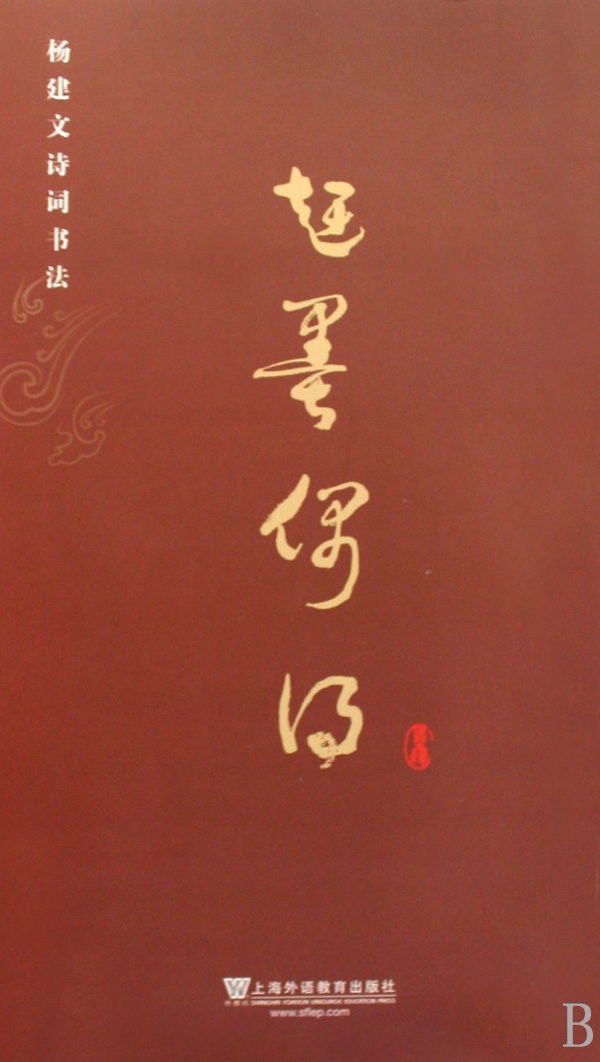 杨建文诗词书法
墨偶得
W 上海外语教育出版社
外教社 SHANGHAI FOREIGN LANGUAGE EDUCATION PRESS
www.sflep.com
B